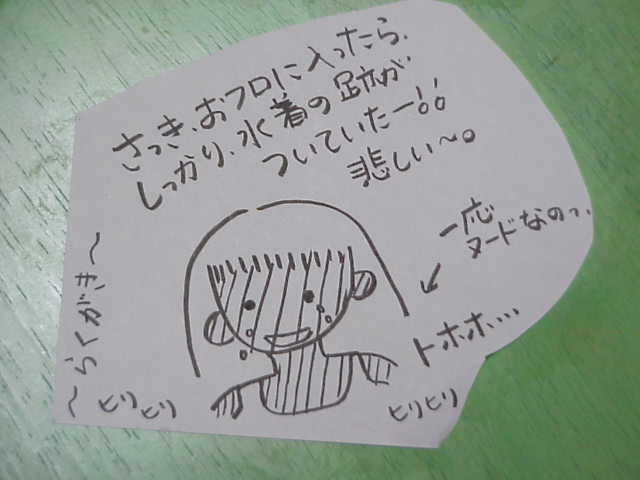 さっき、おフロに入ったら、
しっかり、水着の跡が
ついていたー!!
悲しい〜。
一応
ヌードなのっ。
トホホ…
〜らくがき〜
ヒリヒリ
ヒリヒリ